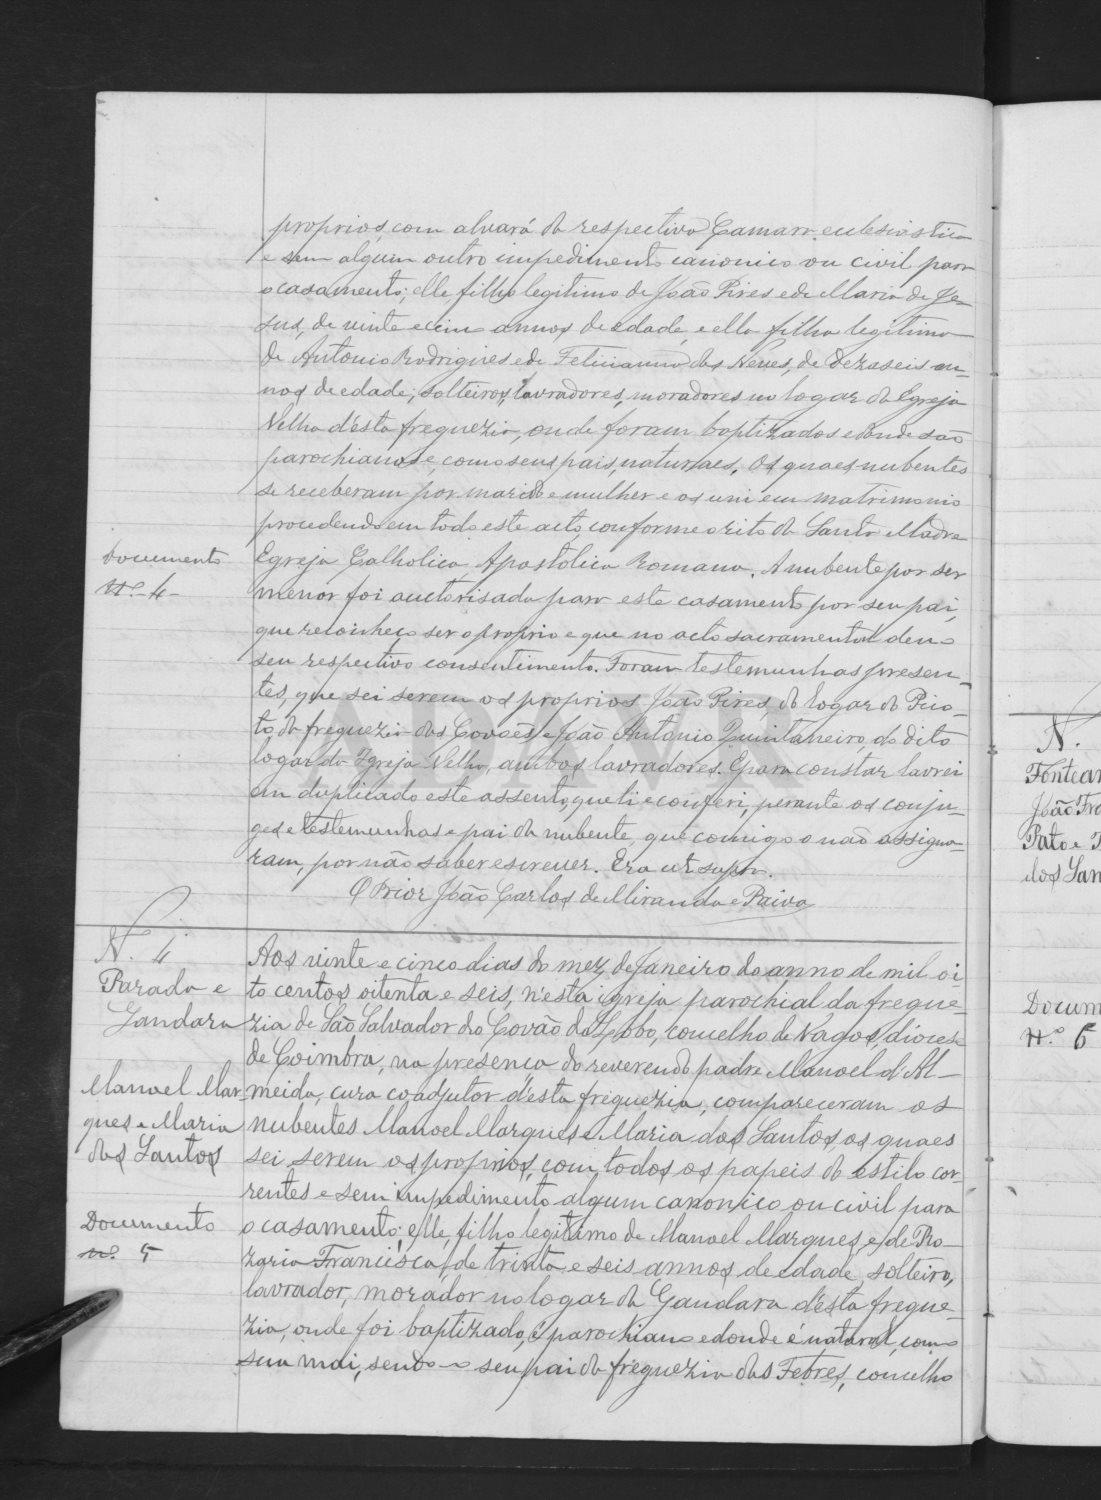 proprios, com alvará da respectiva Camara ecclesiastica
e sem algum outro impedimento canonico ou civil para
o casamento; elle filho legitimo de João Pires e de Maria de Je-
sus, de vinte e cinco annos de edade, e ella filha legitima
de Antonio Rodrigues e de Felicianna das Neves, de dezaseis an-
nos de edade; solteiros, lavradores, moradores no logar da Egreja
Velha d'esta freguezia, onde foram baptizados e donde são
parochianos e, como seus pais, naturaes. Os quaes nubentes
se receberam por marido e mulher e os uni em matrimonio
procedendo em todo este acto, conforme o rito da Santa Madre
Egreja Catholica Apostolica Romana. A nubente por ser
menor foi auctorisada para este casamento por seu pai,
que reconheço ser o proprio e que no acto sacramental deu o
seu respectivo consentimento. Foram testemunhas presen-
tes, que sei serem os proprios João Pires, do logar do Pico-
to, da freguezia das Covões e João Antonio Quintaneiro, do dito
logar da Igreja Velha, ambos lavradores. E para constar lavrei
em duplicado este assento, que li e conferi, perante os conju-
ges e testemunhas e pai da nubente, que comigo o não assigna-
ram, por não saber escrever. Era ut supra.
O Prior João Carlos de Miranda e Paiva
Documento
Nº 4
N. 4
Parada e
Gandara
Manoel Mar-
ques e Maria
dos Santos
Documento
nº 5
Aos vinte e cinco dias do mez de Janeiro do anno de mil oi-
to centos oitenta e seis, n'esta igreja parochial da fregue-
zia de São Salvador do Covão do Lobo, concelho de Vagos, diocese
de Coimbra, na presença do reverendo padre Manoel d'Al-
meida, cura coadjutor d'esta freguezia, compareceram os
nubentes Manoel Marques e Maria dos Santos, os quaes
sei serem os proprios, com todos os papeis do estilo cor-
rentes e sem impedimento algum canonico ou civil para
o casamento; elle, filho legitimo de Manoel Marques e de Ro-
zaria Francisca, de trinta e seis annos de edade, solteiro,
lavrador, morador no logar da Gandara d'esta fregue-
zia, onde foi baptizado, é parochiano e donde é natural, como
sua mai, sendo o seu pai da freguezia das Febres, concelho
N.
Fontear
João Fra
Pato e
dos San
Docum
Nº 6